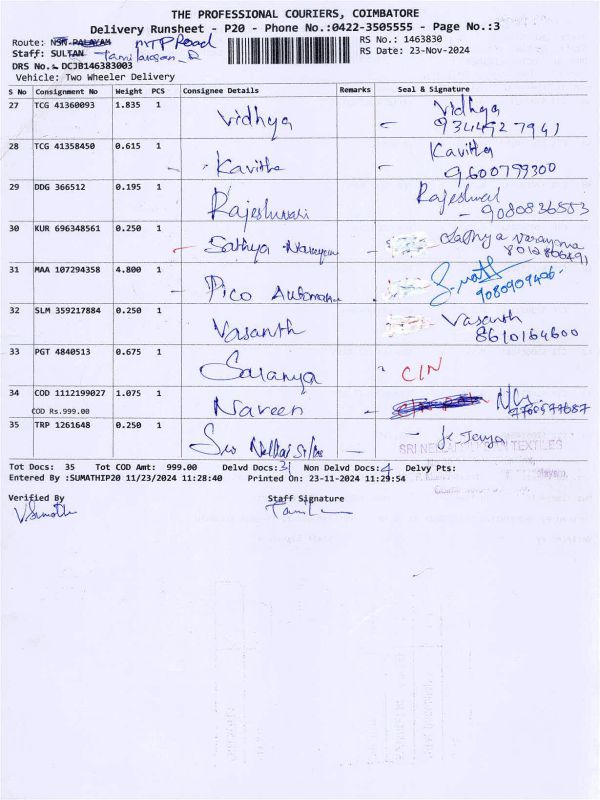 THE PROFESSIONAL COURIERS, COIMBATORE
Delivery Runsheet - P20 - Phone No.:0422-3505555 - Page No.:3
Route: NSN-PALAYAM MTP Road
RS No.: 1463830
Staff: SULTAN Tamilarasan_D
RS Date: 23-Nov-2024
DRS No.: DCJB146383003
Vehicle: Two Wheeler Delivery
S No Consignment No Weight PCS Consignee Details Remarks Seal & Signature
27 TCG 41360093 1.835 1 Vidhya Vidhya
9344927941
28 TCG 41358450 0.615 1 Kavitha Kavitha
9600799300
29 DDG 366512 0.195 1 Rajeshwari Rajeshwari
9080836553
30 KUR 696348561 0.250 1 Sathya Narayan Sathya Narayana
8012806491
31 MAA 107294358 4.800 1 Pico
9080909406
32 SLM 359217884 0.250 1 Vasanth Vasanth
8610164600
33 PGT 4840513 0.675 1 Saranya CIN
34 COD 1112199027 1.075 1 Naveen
COD Rs.999.00 7708577687
35 TRP 1261648 0.250 1 Sri Nellai Jeya
TEXTILES
Tot Docs: 35 Tot COD Amt: 999.00 Delvd Docs: 31 Non Delvd Docs: 4 Delvy Pts:
Entered By :SUMATHIP20 11/23/2024 11:28:40 Printed On: 23-11-2024 11:29:54
Verified By Staff Signature
V.Sumathi